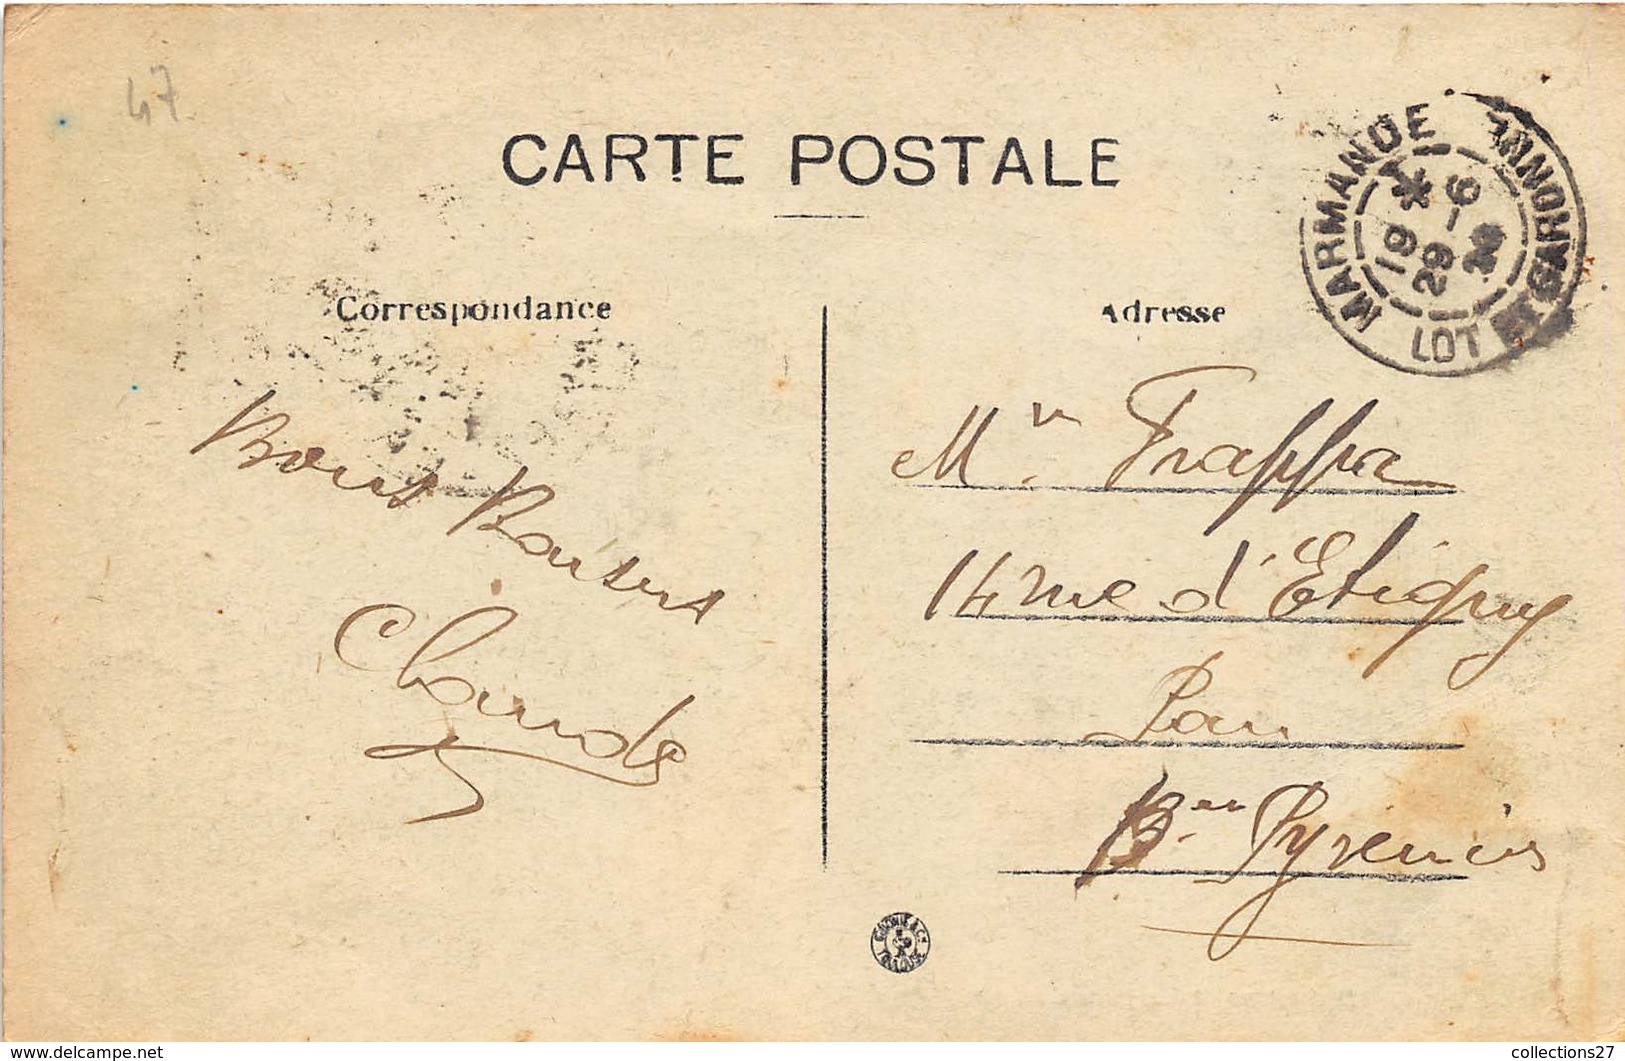 47
CARTE POSTALE
MARMANDE
LOT ET GARONNE
19 *
29 -6
20
Correspondance
Adresse
Bons Baisers
Claude
Mr Trappa
14 rue d'Etigny
Pau
Bses Pyrénées
www.delcampe.net
collections27